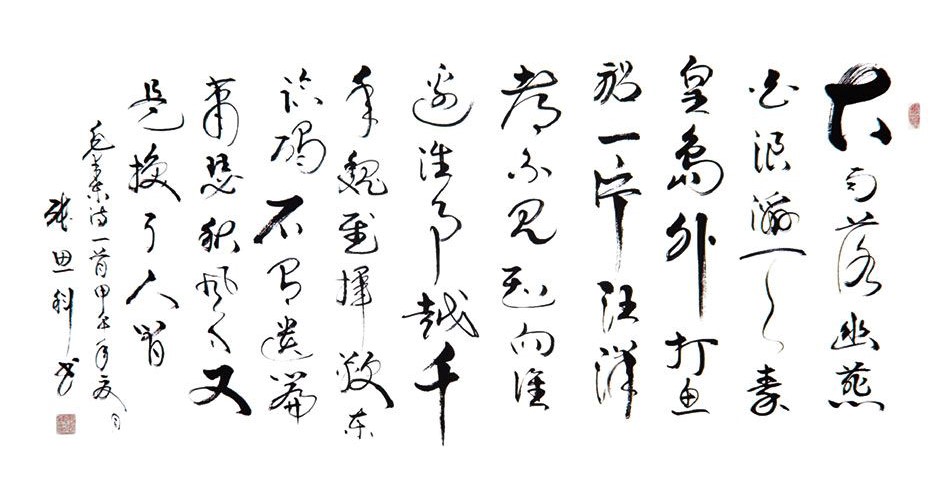 大雨落幽燕
白浪滔天秦
皇岛外打鱼
船一片汪洋
都不见知向谁
边往事越千
年魏武挥鞭东
临碣石有遗篇
萧瑟秋风今又
是换了人间
毛主席诗一首甲午年夏月
张思科书